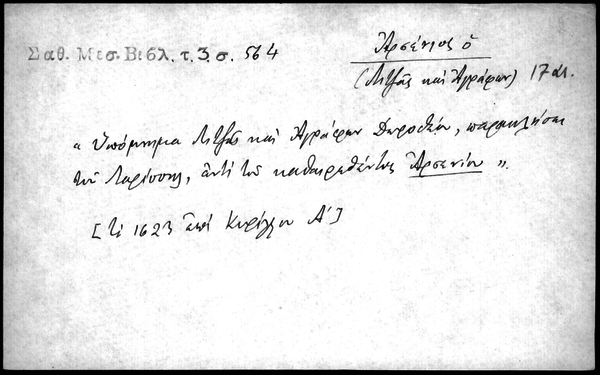 Σαθ. Μεσ. Βιβλ. τ. 3. σ. 564
Ἀρσένιος ὁ
(Λιτζᾶς καὶ Ἀγράφων) 17 αι.
« Ὑπόμνημα Λιτζᾶς καὶ Ἀγράφων Δωροθέου, παρακλήσει
τοῦ Λαρίσσης, ἀντὶ τοῦ καθαιρεθέντος Ἀρσενίου ».
[Τῷ 1623 ἐπὶ Κυρίλλου Α']